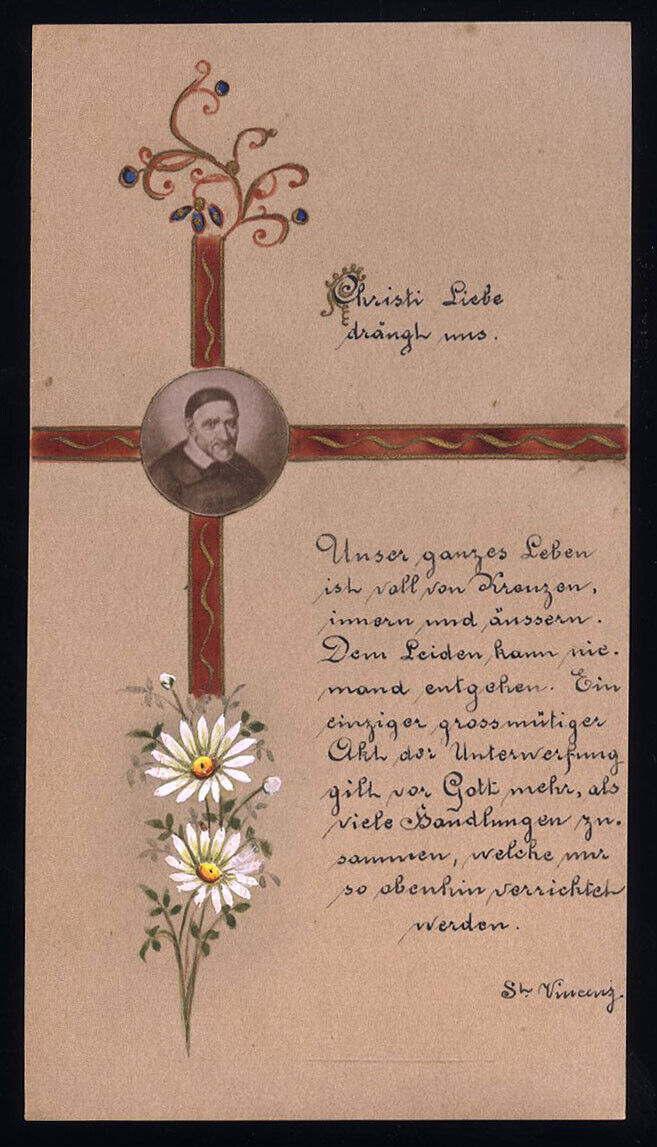 Christi Liebe
drängt uns.
Unser ganzes Leben
ist voll von Kreuzen,
innern und äussern.
Dem Leiden kann nie-
mand entgehen. Ein
einziger grossmütiger
Akt der Unterwerfung
gilt vor Gott mehr, als
viele Handlungen zu-
sammen, welche nur
so obenhin verrichtet
werden.
St. Vincenz.